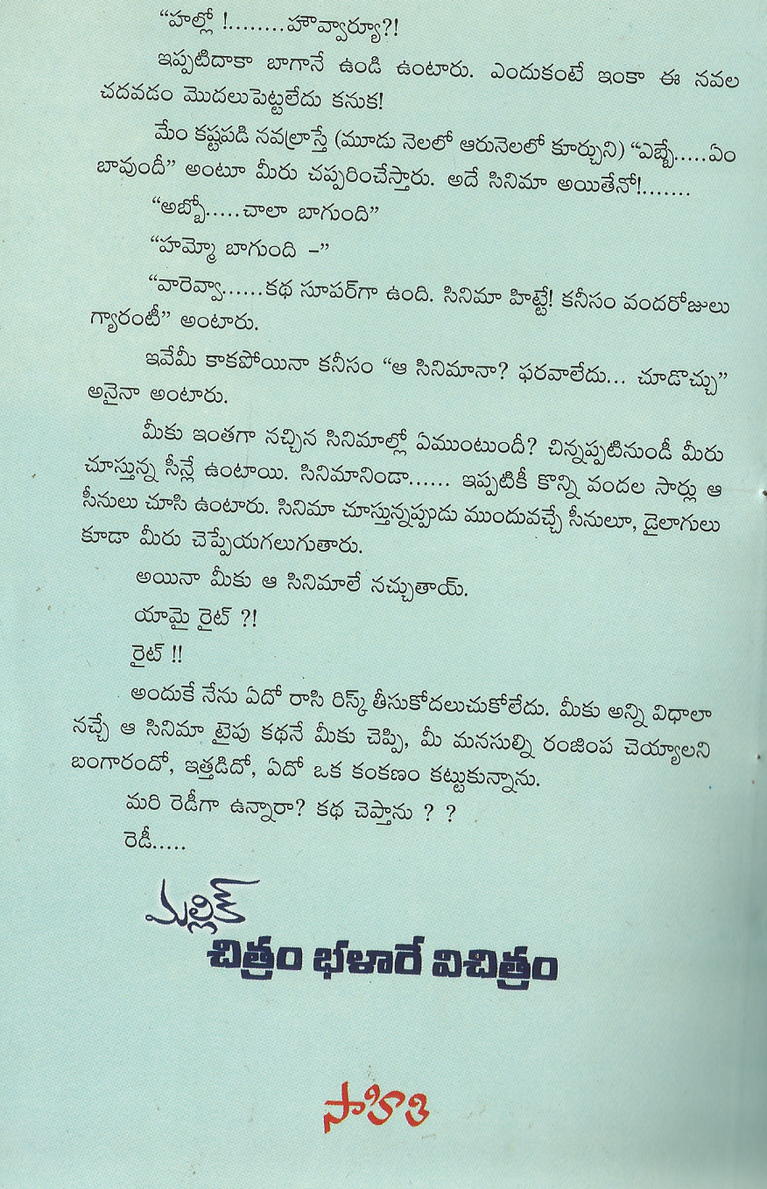 “హల్లో !........హౌవ్వార్యూ?!
ఇప్పటిదాకా బాగానే ఉండి ఉంటారు. ఎందుకంటే ఇంకా ఈ నవల
చదవడం మొదలుపెట్టలేదు కనుక!
మేం కష్టపడి నవల్రాస్తే (మూడు నెలలో ఆరునెలలో కూర్చుని) “ఎబ్బే.....ఏం
బావుందీ” అంటూ మీరు చప్పరించేస్తారు. అదే సినిమా అయితేనో!.......
“అబ్బో.....చాలా బాగుంది”
“హమ్మో బాగుంది –”
“వారెవ్వా......కథ సూపర్‌గా ఉంది. సినిమా హిట్టే! కనీసం వందరోజులు
గ్యారంటీ” అంటారు.
ఇవేమీ కాకపోయినా కనీసం “ఆ సినిమానా? ఫరవాలేదు... చూడొచ్చు”
అనైనా అంటారు.
మీకు ఇంతగా నచ్చిన సినిమాల్లో ఏముంటుందీ? చిన్నప్పటినుండీ మీరు
చూస్తున్న సీన్లే ఉంటాయి. సినిమానిండా...... ఇప్పటికీ కొన్ని వందల సార్లు ఆ
సీనులు చూసి ఉంటారు. సినిమా చూస్తున్నప్పుడు ముందువచ్చే సీనులూ, డైలాగులు
కూడా మీరు చెప్పేయగలుగుతారు.
అయినా మీకు ఆ సినిమాలే నచ్చుతాయ్.
యామై రైట్ ?!
రైట్ !!
అందుకే నేను ఏదో రాసి రిస్క్ తీసుకోదలుచుకోలేదు. మీకు అన్ని విధాలా
నచ్చే ఆ సినిమా టైపు కథనే మీకు చెప్పి, మీ మనసుల్ని రంజింప చెయ్యాలని
బంగారందో, ఇత్తడిదో, ఏదో ఒక కంకణం కట్టుకున్నాను.
మరి రెడీగా ఉన్నారా? కథ చెప్తాను ? ?
రెడీ.....
మల్లిక్
చిత్రం భళారే విచిత్రం
సాహితి